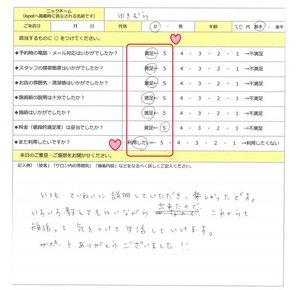 ニックネーム
(epark掲載時に表示される名前です) ゆきむら
ご来店日 月 日 性別 女 ・ 男 年齢 30代 前半 ・ 後半
該当するものに○をつけてください。
◆予約時の電話・メール対応はいかがでしたか? 満足← 5 ・ 4 ・ 3 ・ 2 ・ 1 →不満足
◆スタッフの接客態度はいかがでしたか? 満足← 5 ・ 4 ・ 3 ・ 2 ・ 1 →不満足
◆お店の雰囲気・清潔感はいかがでしたか? 満足← 5 ・ 4 ・ 3 ・ 2 ・ 1 →不満足
◆施術前の説明は十分でしたか? 満足← 5 ・ 4 ・ 3 ・ 2 ・ 1 →不満足
◆施術はいかがでしたか? 満足← 5 ・ 4 ・ 3 ・ 2 ・ 1 →不満足
◆料金(価格的満足度)は妥当でしたか? 満足← 5 ・ 4 ・ 3 ・ 2 ・ 1 →不満足
◆また利用したいですか? 利用したい← 5 ・ 4 ・ 3 ・ 2 ・ 1 →利用したくない
本日のご意見・ご感想をお聞かせください。
記入例)「接客」「サロン内の雰囲気」「施術内容」などをなるべく詳しくご記入ください。
いつも ていねいに 説明していただき、楽しかったです。
いろいろ 教えてもらいながら 出来たので、これからも
頑張って 気をつけて 生活していけます。
サポート ありがとうございました!!